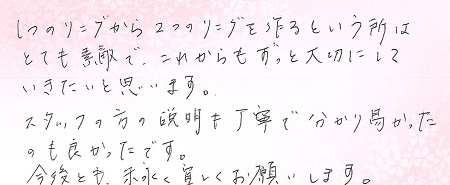 1つのリングから2つのリングを作るという所は
とても素敵で、これからもずっと大切にして
いきたいと思います。
スタッフの方の説明も丁寧で分かり易かった
のも良かったです。
今後とも、末永く宜しくお願いします。